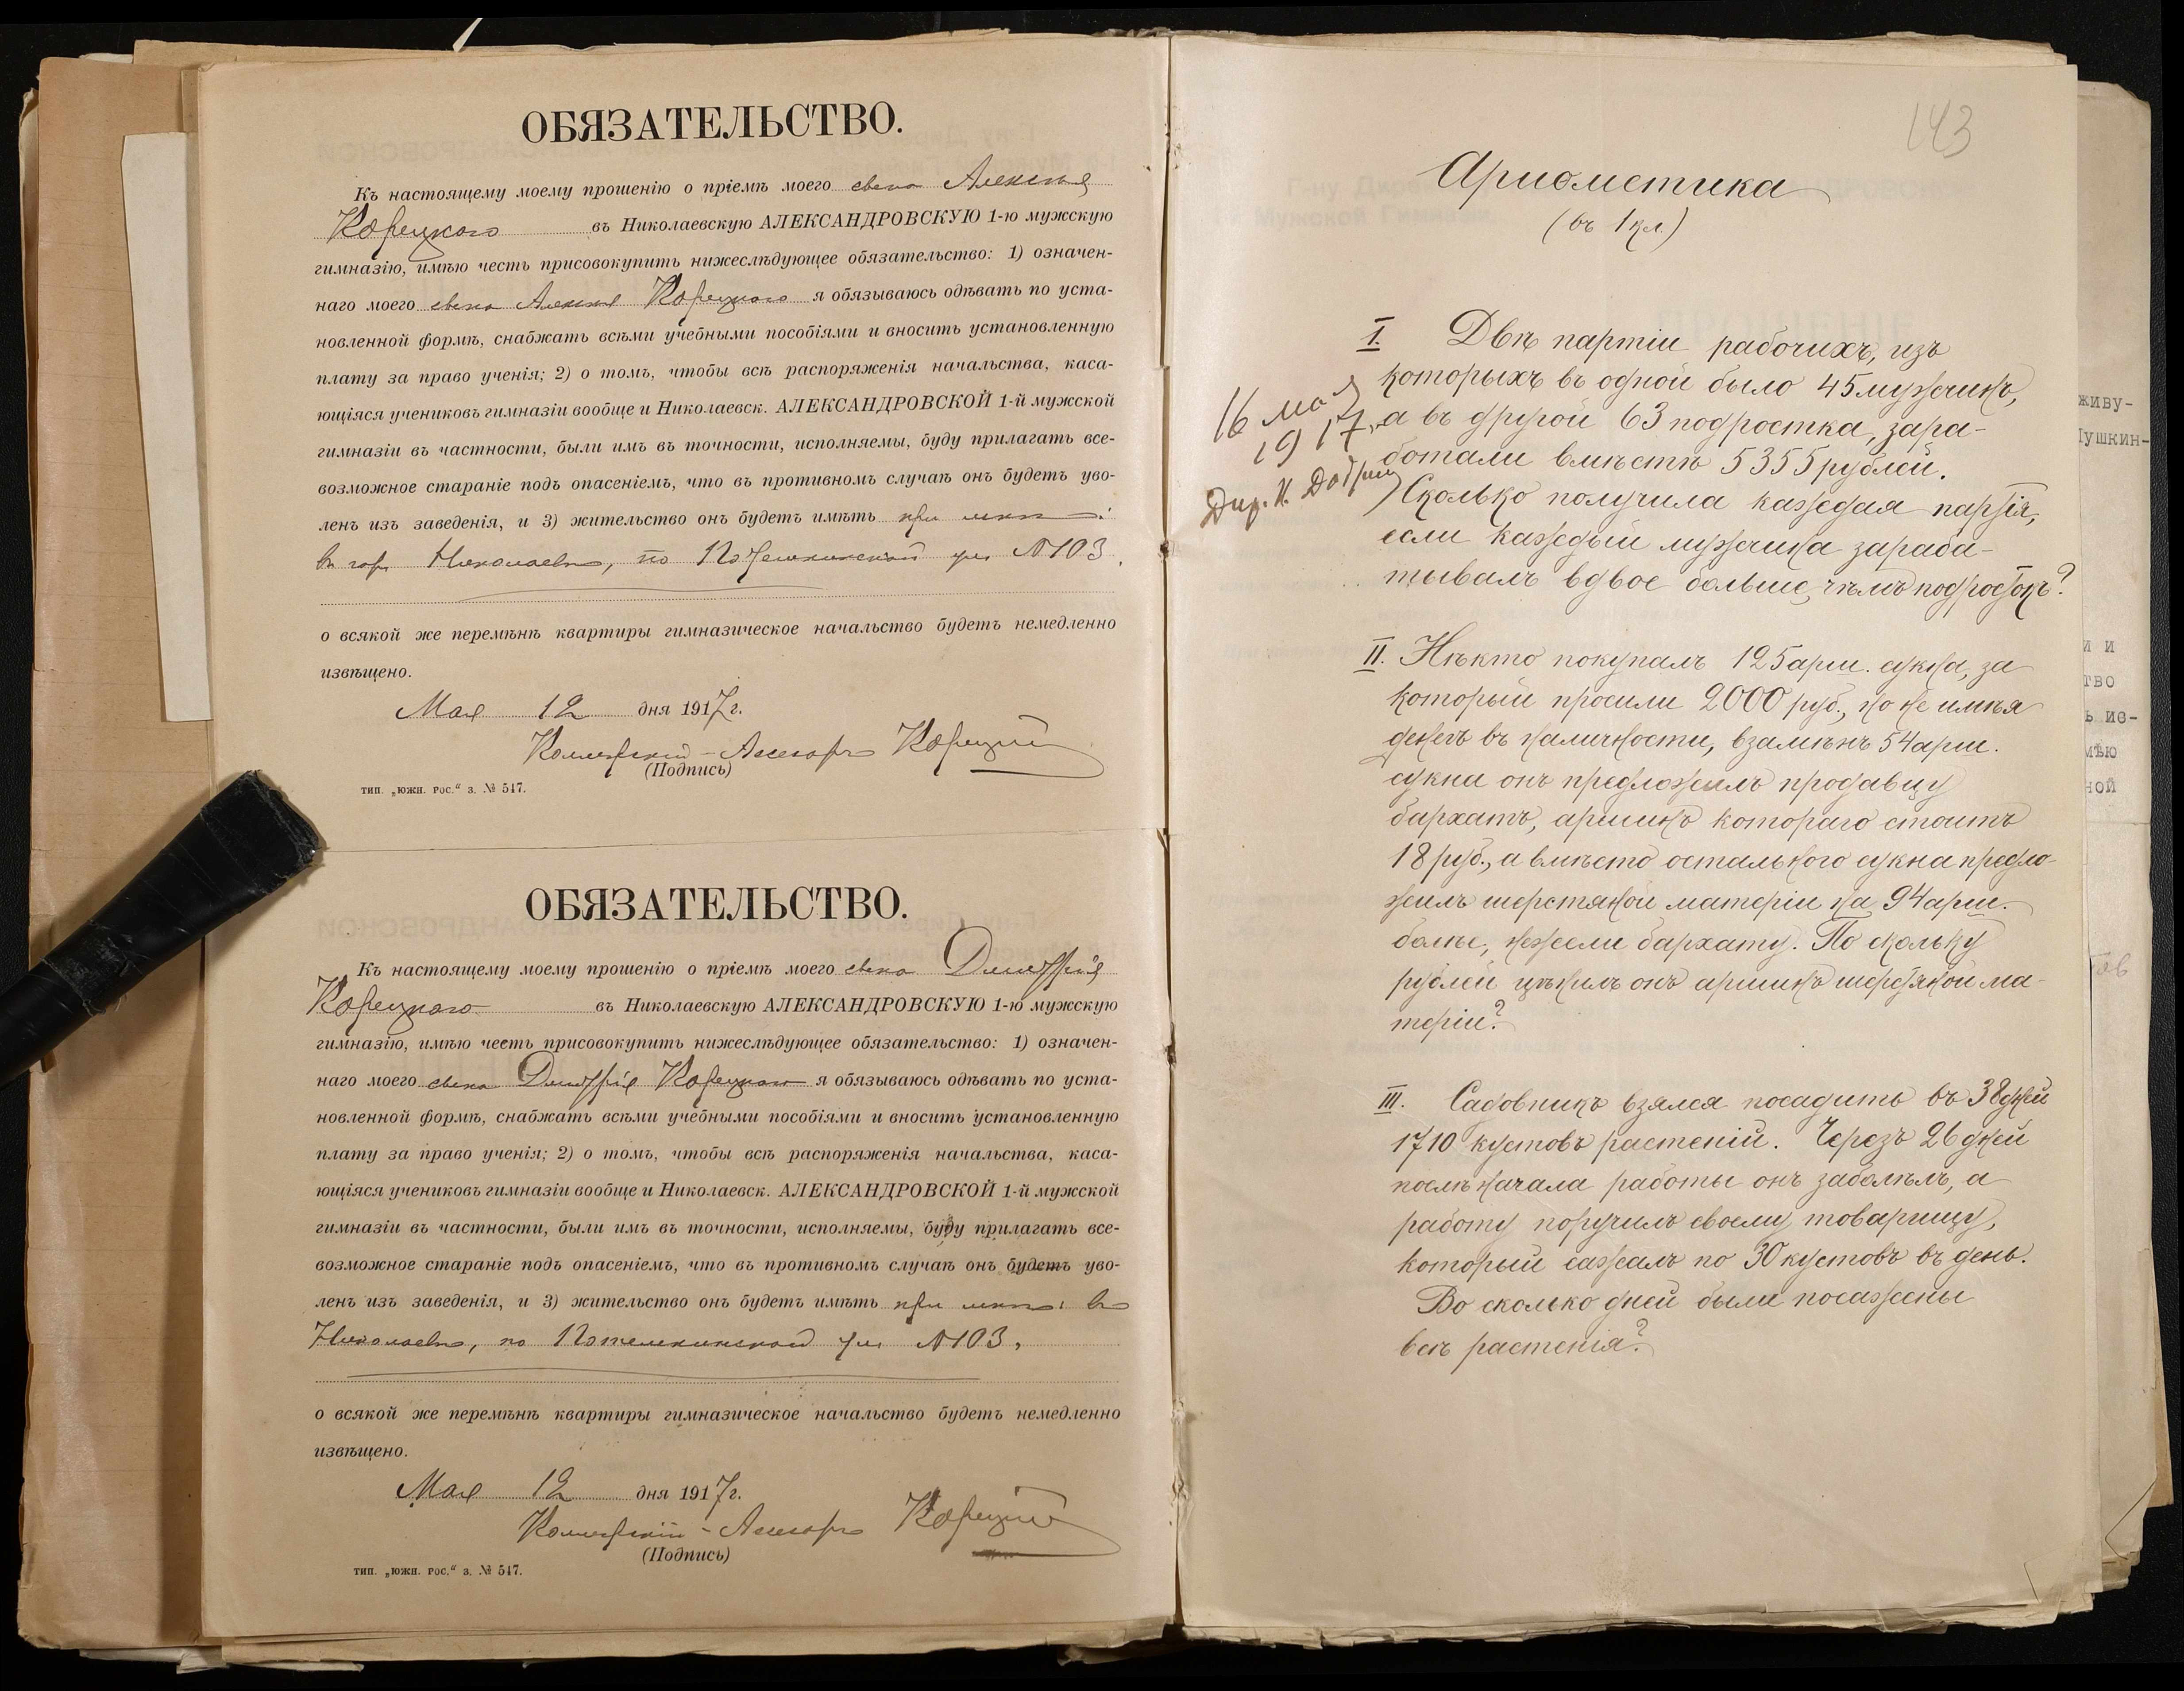 ОБЯЗАТЕЛЬСТВО.
Къ настоящему моему прошенію о пріемѣ моего сына Алексѣя
Корецкого въ Николаевскую АЛЕКСАНДРОВСКУЮ 1-ю мужскую
гимназію, имѣю честь присовокупить нижеслѣдующее обязательство: 1) означен-
наго моего сына Алексѣя Корецкого я обязываюсь одѣвать по уста-
новленной формѣ, снабжать всѣми учебными пособіями и вносить установленную
плату за право ученія; 2) о томъ, чтобы всѣ распоряженія начальства, каса-
ющіяся учениковъ гимназіи вообще и Николаевск. АЛЕКСАНДРОВСКОЙ 1-й мужской
гимназіи въ частности, были имъ въ точности, исполняемы, буду прилагать все-
возможное стараніе подъ опасеніемъ, что въ противномъ случаѣ онъ будетъ уво-
ленъ изъ заведенія, и 3) жительство онъ будетъ имѣть при мнѣ:
въ гор. Николаевѣ, по Потемкинской ул. №103.
о всякой же перемѣнѣ квартиры гимназическое начальство будетъ немедленно
извѣщено.
Мая 12 дня 1917 г.
Коллежскій-Ассесоръ Корецкій
(Подпись)
тип. „южн. рос.“ з. № 547.
ОБЯЗАТЕЛЬСТВО.
Къ настоящему моему прошенію о пріемѣ моего сына Димитрія
Корецкаго въ Николаевскую АЛЕКСАНДРОВСКУЮ 1-ю мужскую
гимназію, имѣю честь присовокупить нижеслѣдующее обязательство: 1) означен-
наго моего сына Димитрія Корецкаго я обязываюсь одѣвать по уста-
новленной формѣ, снабжать всѣми учебными пособіями и вносить установленную
плату за право ученія; 2) о томъ, чтобы всѣ распоряженія начальства, каса-
ющіяся учениковъ гимназіи вообще и Николаевск. АЛЕКСАНДРОВСКОЙ 1-й мужской
гимназіи въ частности, были имъ въ точности, исполняемы, буду прилагать все-
возможное стараніе подъ опасеніемъ, что въ противномъ случаѣ онъ будетъ уво-
ленъ изъ заведенія, и 3) жительство онъ будетъ имѣть при мнѣ: въ
Николаевѣ, по Потемкинской ул. №103.
о всякой же перемѣнѣ квартиры гимназическое начальство будетъ немедленно
извѣщено.
Мая 12 дня 1917 г.
Коллежскій-Ассесоръ Корецкій
(Подпись)
тип. „южн. рос.“ з. № 547.
143
Ариѳметика
(въ 1 кл.)
16 мая
1917
Дир. Н.
I. Двѣ партіи рабочихъ, изъ
которыхъ въ одной было 45 мужчинъ,
а въ другой 63 подростка, зара-
ботали вмѣстѣ 5355 рублей.
Сколько получила каждая партія,
если каждый мужчина зараба-
тывалъ вдвое больше, чѣмъ подростокъ?
II. Нѣкто покупалъ 125 арш. сукна, за
который просили 2000 руб., но не имѣя
денегъ въ наличности, взамѣнъ 54 арш.
сукна онъ предложилъ продавцу
бархатъ, аршинъ котораго стоитъ
18 руб., а вмѣсто остального сукна предло-
жилъ шерстяной матеріи на 94 арш.
болѣе, нежели бархату. По скольку
рублей цѣнилъ онъ аршинъ шерстяной ма-
теріи?
III. Садовникъ взялся посадить въ 38 дней
1710 кустовъ растеній. Черезъ 26 дней
послѣ начала работы онъ заболѣлъ, а
работу поручилъ своему товарищу,
который сажалъ по 30 кустовъ въ день.
Во сколько дней были посажены
всѣ растенія?
живу-
Пушкин-
и и
тво
ь ис-
мѣю
ной